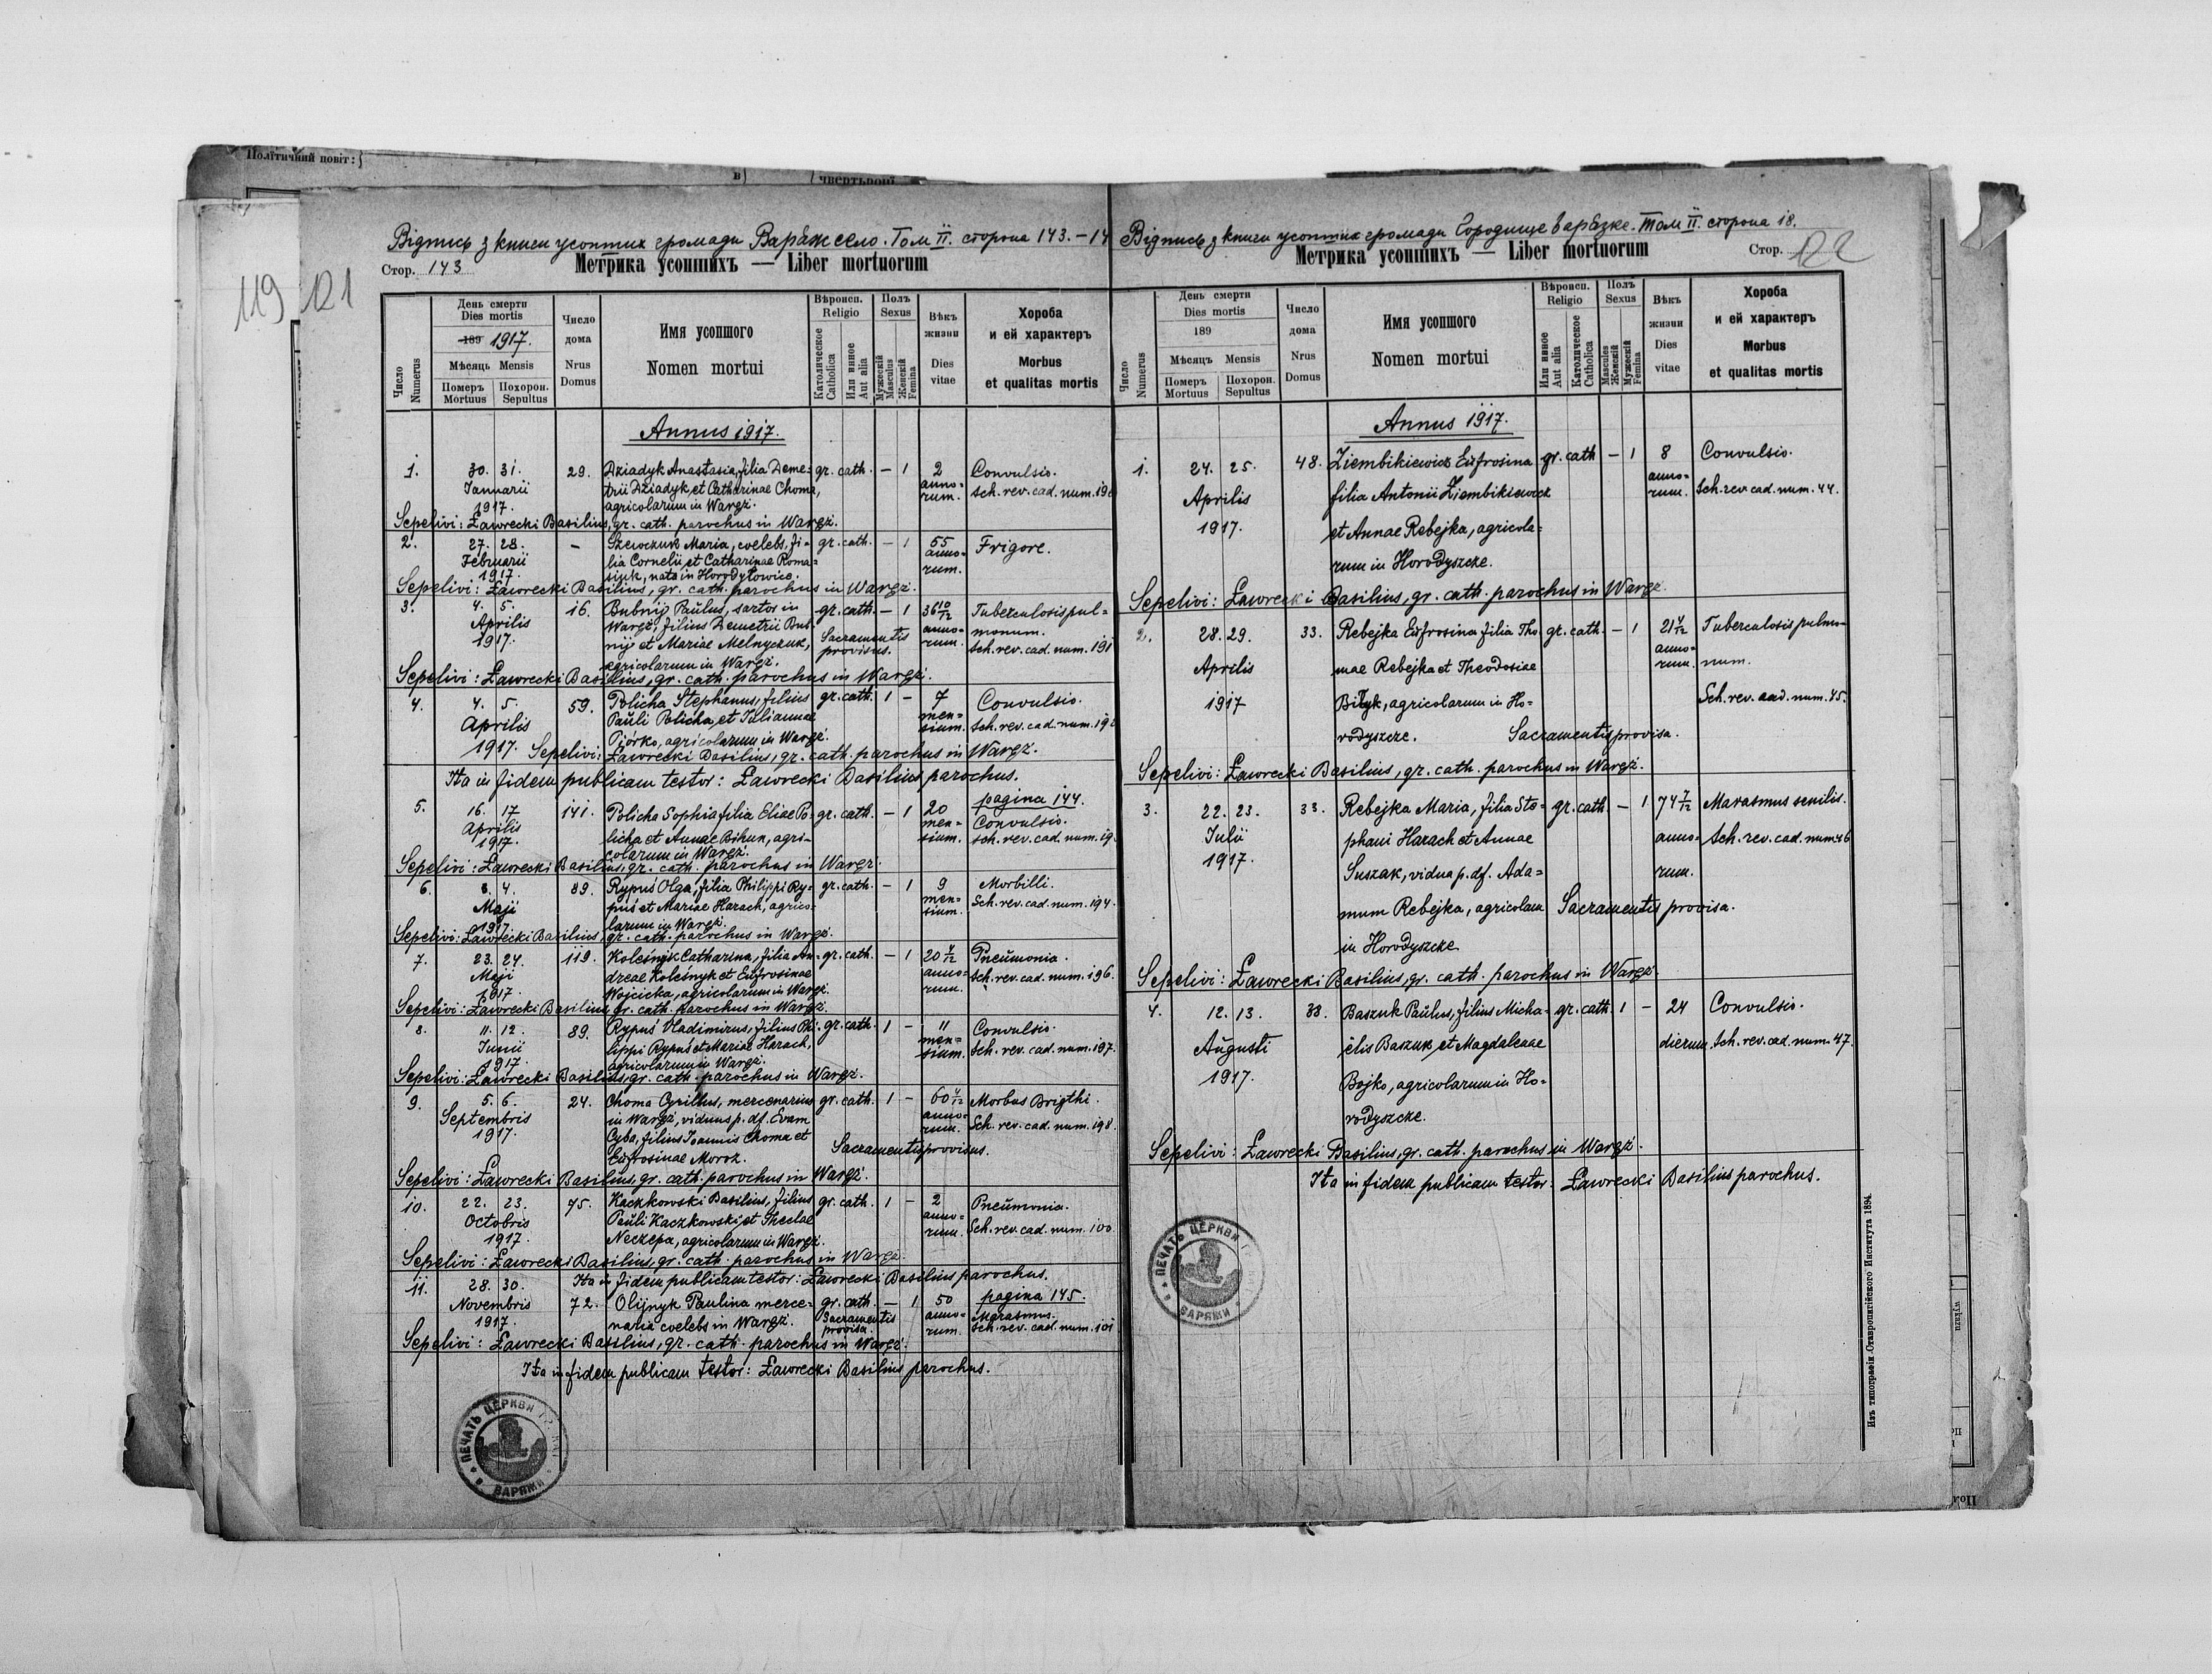 Полїтичний повіт:
в)
чвертьрочї
119
121
Відпись з книги усопших громади Варяж село. Том II. сторона 143.–14
Стор. 143
Метрика усопшихъ — Liber mortuorum
Число
Numerus
День смерти
Dies mortis
189 1917.
Мѣсяць Mensis
Померъ Похорон.
Mortuus Sepultus
Число
дома
Nrus
Domus
Имя усопшого
Nomen mortui
Вѣроисп.
Religio
Католическое
Catholica
Или инное
Aut alia
Полъ
Sexus
Мужескій
Masculus
Женскій
Femina
Вѣкъ
жизни
Dies
vitae
Хороба
и ей характеръ
Morbus
et qualitas mortis
Annus 1917.
1. 30. 31. 29. Dziadyk Anastasia, filia Deme= gr. cath. – 1 2 Convulsio.
Januarii trii Dziadyk, et Catharinae Choma, anno= Sch. rev. cad. num. 190
1917. agricolarum in Waręż. rum.
Sepelivi: Ławrecki Basilius, gr. cath. parochus in Waręż.
2. 27. 28. – Szewczuk Maria, coelebs, fi= gr. cath. – 1 55 Frigore.
Februarii lia Cornelii et Catharinae Roma= anno=
1917. siuk, nata in Horodyłowice. rum.
Sepelivi: Ławrecki Basilius, gr. cath. parochus in Waręż.
3. 4. 5. 16. Bubnij Paŭlus, sartor in gr. cath. – 1 36 10/12 Tuberculosis pul=
Aprilis Waręż, filius Demetrii Bub= Sacramentis anno= monum.
1917. nij et Mariae Melnyczuk, provisus. rum. Sch. rev. cad. num. 191
agricolarum in Waręż.
Sepelivi: Ławrecki Basilius, gr. cath. parochus in Waręż.
4. 4. 5. 59. Policha Stephanus, filius gr. cath. 1 – 7 Convulsio.
Aprilis Paŭli Policha, et Juliannae men= Sch. rev. cad. num. 192
1917. Piórko, agricolarum in Waręż. sium.
Sepelivi: Ławrecki Basilius, gr. cath. parochus in Waręż.
Ita in fidem publicam testor: Ławrecki Basilius parochus.
pagina 144.
5. 16. 17 141. Policha Sophia filia Eliae Po= gr. cath. – 1 20 Convulsio.
Aprilis licha et Annae Bihun, agri= men= Sch. rev. cad. num. 19
1917. colarum in Waręż. sium.
Sepelivi: Ławrecki Basilius, gr. cath. parochus in Waręż.
6. 3. 4. 89. Rypuś Olga, filia Philippi Ry= gr. cath. – 1 9 Morbilli.
Maji puś et Mariae Harach, agrico= men= Sch. rev. cad. num. 194.
1917 larum in Waręż. sium.
Sepelivi: Ławrecki Basilius, gr. cath. parochus in Waręż.
7. 23. 24. 119. Kolesnyk Catharina, filia An= gr. cath. – 1 20 4/12 Pneŭmonia.
Maji dreae Kolesnyk et Eufrosinae anno= Sch. rev. cad. num. 196.
1917 Wojcicka, agricolarum in Waręż. rum.
Sepelivi: Ławrecki Basilius, gr. cath. parochus in Waręż.
8. 11. 12. 89. Rypuś Vladimirus, filius Phi= gr. cath. 1 – 11 Convulsio.
Junii lippi Rypuś et Mariae Harach, men= Sch. rev. cad. num. 197.
1917 agricolarum in Waręż. sium.
Sepelivi: Ławrecki Basilius, gr. cath. parochus in Waręż.
9. 5. 6. 24. Choma Cyrillus, mercenarius gr. cath. 1 – 60 4/12 Morbus Brigthi.
Septembris in Waręż, viduus p. df. Evam anno= Sch. rev. cad. num. 198.
1917. Cyba, filius Joannis Choma et rum.
Eufrosinae Moroz. Sacramentis provisus.
Sepelivi: Ławrecki Basilius, gr. cath. parochus in Waręż.
10. 22. 23. 75. Kaczkowski Basilius, filius gr. cath. 1 – 2 Pneŭmonia.
Octobris Paŭli Kaczkowski et Theclae anno= Sch. rev. cad. num. 100
1917. Neczepa, agricolarum in Waręż. rum.
Sepelivi: Ławrecki Basilius, gr. cath. parochus in Waręż.
Ita in fidem publicam testor: Ławrecki Basilius parochus.
pagina 145.
11. 28. 30. 72. Olijnyk Paulina merce= gr. cath. – 1 50 Marasmus.
Novembris naria coelebs in Waręż. Sacramentis anno= Sch. rev. cad. num. 101
1917. provisa. rum.
Sepelivi: Ławrecki Basilius, gr. cath. parochus in Waręż.
Ita in fidem publicam testor: Ławrecki Basilius parochus.
ПЕЧАТЬ ЦЕРКВИ
ВАРЯЖИ
Відпись з книги усопших громади Городище варязке. Том II. сторона 18.
Метрика усопшихъ — Liber mortuorum
Стор. 122
Число
Numerus
День смерти
Dies mortis
189
Мѣсяцъ Mensis
Померъ Похорон.
Mortuus Sepultus
Число
дома
Nrus
Domus
Имя усопшого
Nomen mortui
Вѣроисп.
Religio
Или инное
Aut alia
Католическое
Catholica
Полъ
Sexus
Masculus
Женскій
Мужескій
Femina
Вѣкъ
жизни
Dies
vitae
Хороба
и ей характеръ
Morbus
et qualitas mortis
Annus 1917.
1. 24. 25. 48. Ziembikiewicz Eŭfrosina gr. cath – 1 8 Convulsio.
Aprilis filia Antonii Ziembikiewicz anno= Sch. rev cad. num. 44.
1917. et Annae Rebejka, agricola= rum.
rum in Horodyszcze.
Sepelivi: Ławrecki Basilius, gr. cath. parochus in Waręż.
2. 28. 29. 33. Rebejka Eŭfrosina filia Tho gr. cath. – 1 21 4/12 Tuberculosis pulmo=
Aprilis mae Rebejka et Theodosiae anno= num.
1917 Biłyk, agricolarum in Ho= rum. Sch. rev. cad. num. 45.
rodyszcze. Sacramentis provisa.
Sepelivi: Ławrecki Basilius, gr. cath. parochus in Waręż.
3. 22. 23. 33. Rebejka Maria, filia Ste= gr. cath – 1 74 7/12 Marasmus senilis.
Julii phani Harach et Annae anno= Sch. rev. cad. num 46
1917. Suszak, vidua p. df. Ada= rum.
mum Rebejka, agricolam Sacramentis provisa.
in Horodyszcze
Sepelivi: Ławrecki Basilius, gr. cath. parochus in Waręż.
4. 12. 13. 38. Baszuk Paŭlus, filius Micha= gr. cath. 1 – 24 Convulsio.
Aŭgusti ëlis Baszuk et Magdalenae dierum. Sch. rev. cad. num. 47.
1917. Bojko, agricolarum in Ho=
rodyszcze.
Sepelivi: Ławrecki Basilius, gr. cath. parochus in Waręż.
Ita in fidem publicam testor: Ławrecki Basilius parochus.
ПЕЧАТЬ ЦЕРКВИ
ВАРЯЖИ
Изъ типографіи Ставропигійского Института 1894.